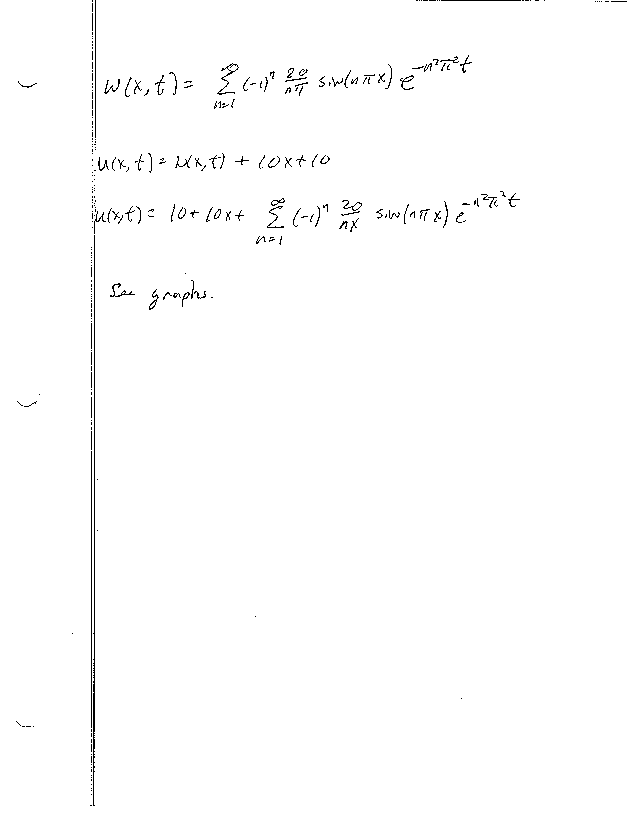 w(x,t) = ∑_{n=1}^{∞} (-1)^n 20/nπ sin(nπx) e^{-n²π²t}
u(x,t) = w(x,t) + 10x+10
u(x,t) = 10+10x+ ∑_{n=1}^{∞} (-1)^n 20/nπ sin(nπx) e^{-n²π²t}
See graphs.